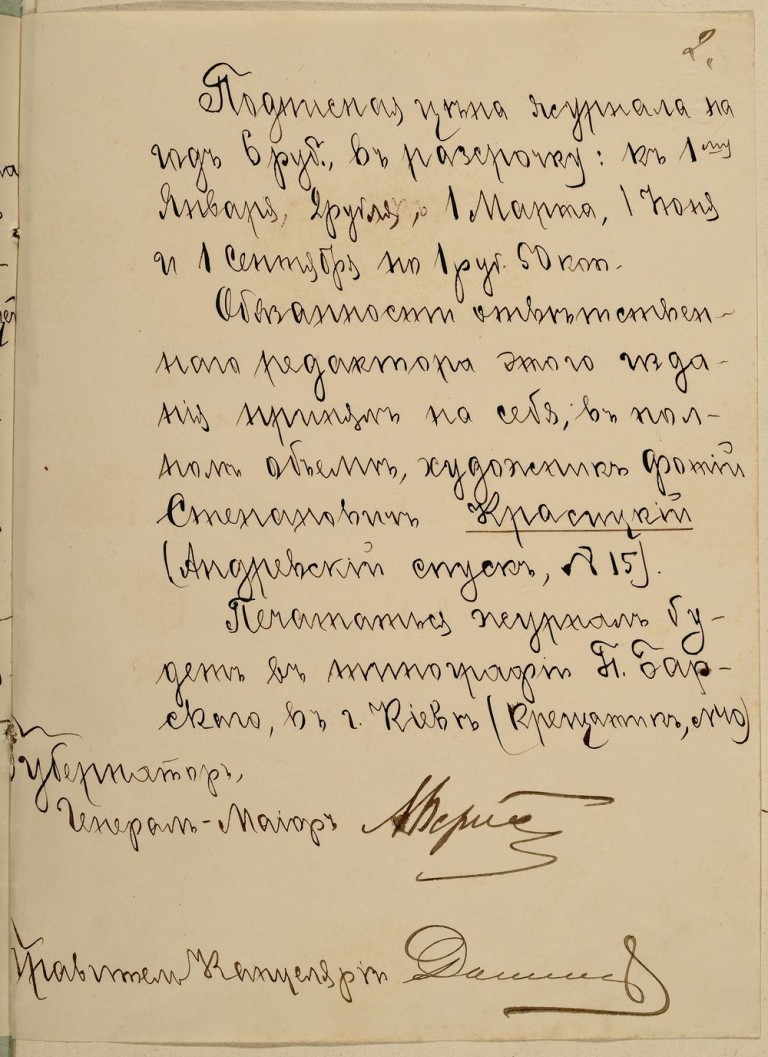 2.
Подписная цѣна журнала на
годъ 6 руб., въ разсрочку: къ 1му
Января, 2 рубля, 1 Марта, 1 Іюня
и 1 Сентября по 1 руб. 50 коп.
Обязанности отвѣтствен-
наго редактора этого изда-
нія принялъ на себя, въ пол-
номъ объемѣ, художникъ Фотій
Степановичъ Красицкій
(Андреевскій спускъ, № 15).
Печататься журналъ бу-
детъ въ типографіи П. Бар-
скаго, въ г. Кіевѣ (Крещатикъ, №40)
Губернаторъ,
Генералъ-Маіоръ
Правитель Канцеляріи